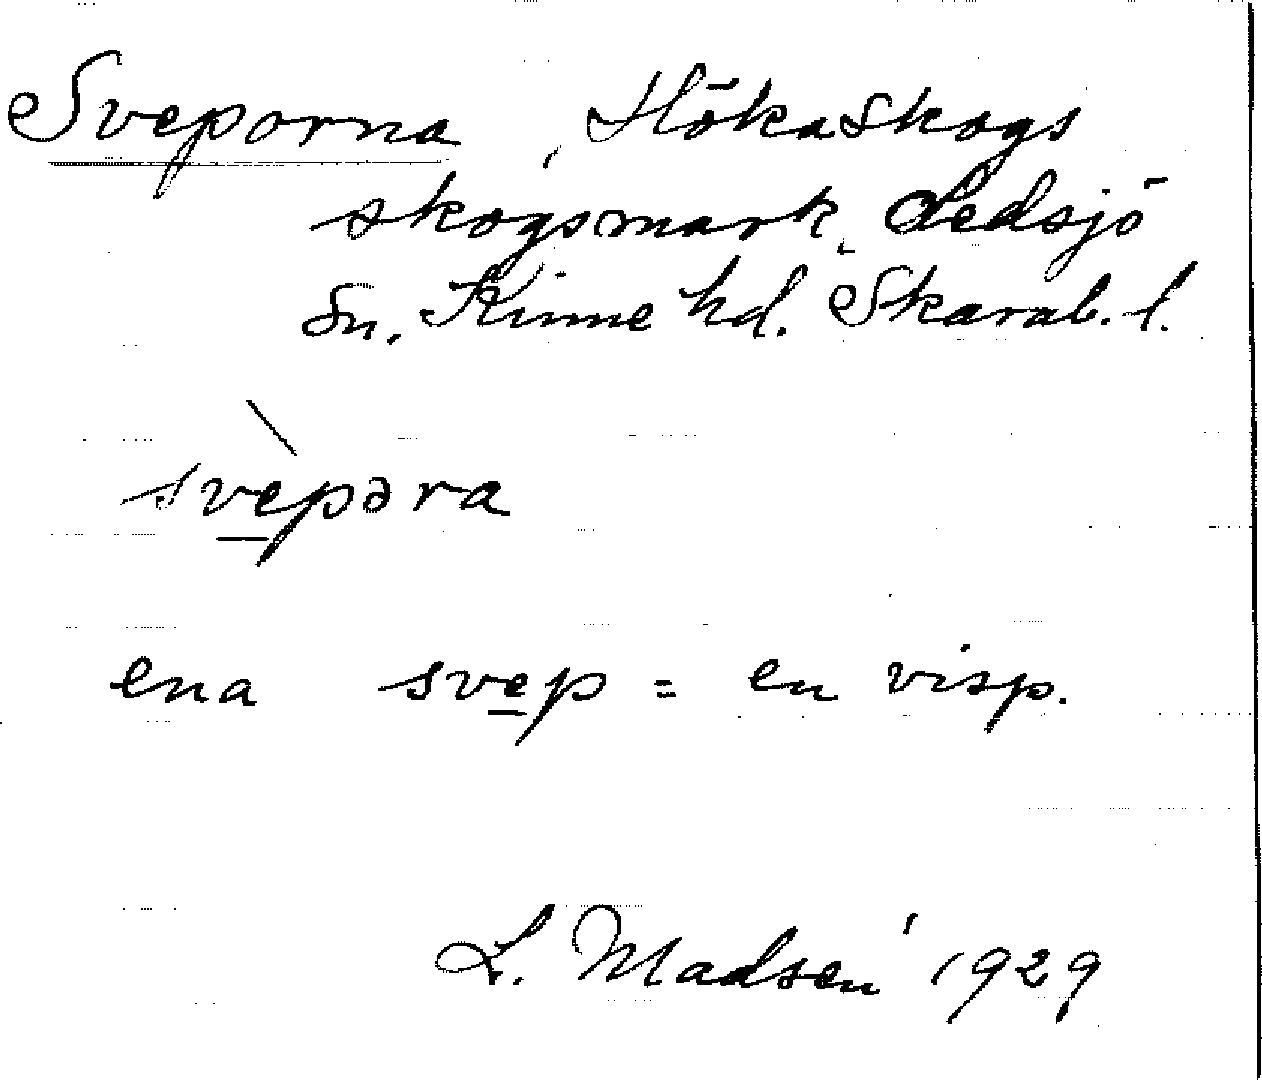 Sveporna, Hökaskogs
skogsmark, Ledsjö
sn. Kinne hd. Skarab. l.
svèpəra
ena svep = en visp.
L. Madsen 1929